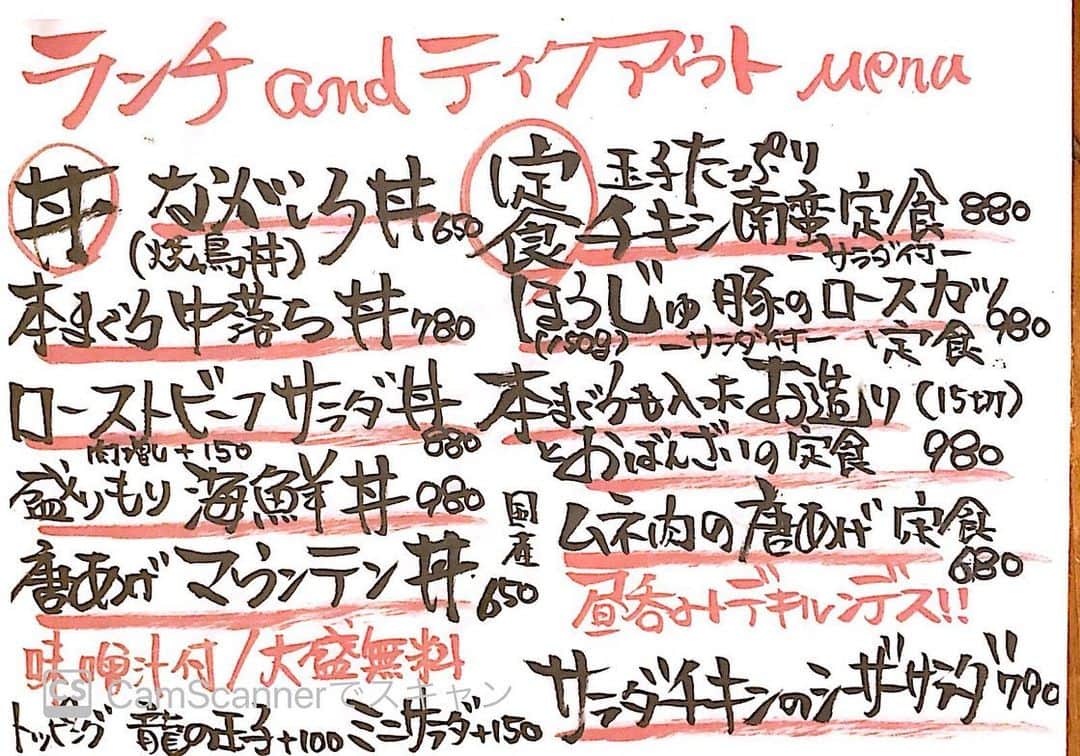 ランチ and テイクアウト menu
丼
ながしろ丼 650
(焼鳥丼)
本まぐろ中落ち丼 780
ローストビーフサラダ丼 880
肉増し+150
盛りもり海鮮丼 980
唐あげマウンテン丼 650
味噌汁付/大盛無料
トッピング 龍の玉子+100 ミニサラダ+150
定食
玉子たっぷり
チキン南蛮定食 880
ーサラダ付ー
ほろじゅ豚のロースカツ 980
(150g) ーサラダ付ー 定食
本まぐろも入ったお造り(15切)
とおばんざいの定食 980
国産
ムネ肉の唐あげ定食 680
昼呑みトデキルンデス!!
サラダチキンのシーザーサラダ 790
CS CamScannerでスキャン